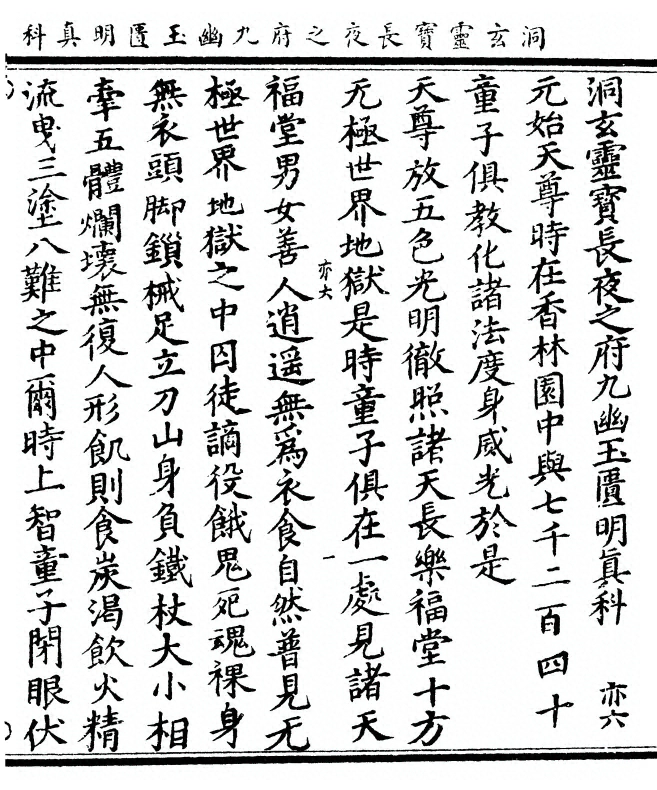 洞玄靈寶長夜之府九幽玉匱明真科
洞玄靈寶長夜之府九幽玉匱明真科 亦六
元始天尊時在香林園中與七千二百四十
童子俱教化諸法度身威光於是
天尊放五色光明徹照諸天長樂福堂十方
无極世界地獄是時童子俱在一處見諸天
福堂男女善人逍遥無爲衣食自然普見无
極世界地獄之中囚徒謫役餓鬼死魂裸身
無衣頭脚鎖械足立刀山身負鐵杖大小相
牽五體爛壞無復人形飢則食炭渴飲火精
流曳三塗八難之中爾時上智童子閉眼伏